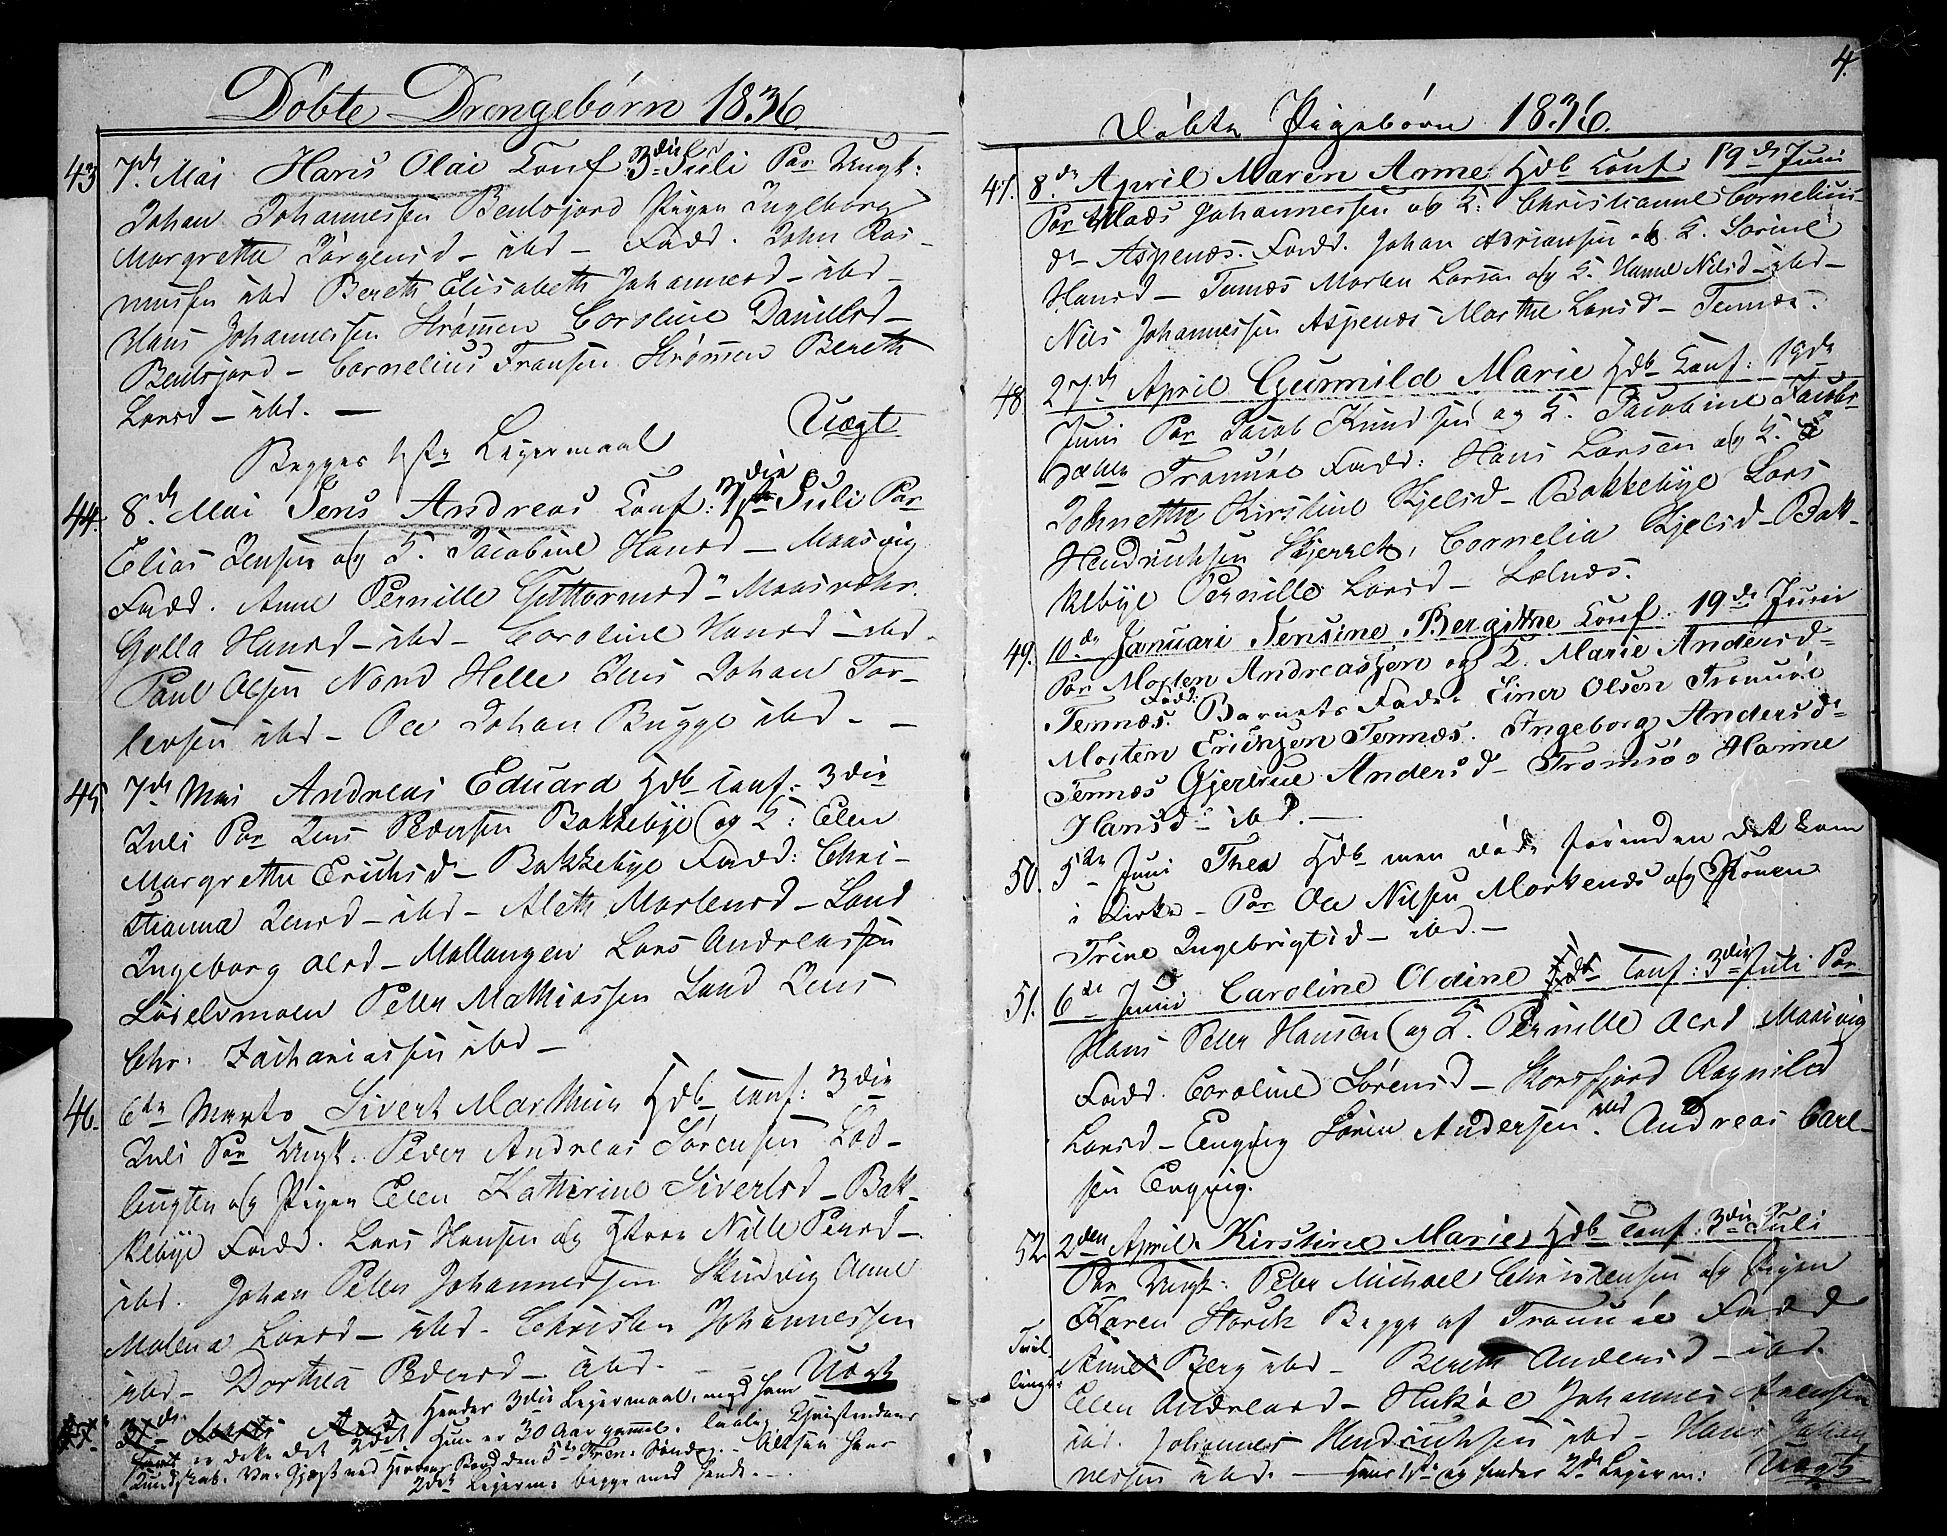 Döbte Drengebørn 1836.
43 7de Mai Hans Olai Conf: 3die Juli Par Ungk:
Johan Johannessen Bentsjord Pigen Ingeborg
Margrethe Jörgensd – ibd – Fadd. John Ras-
mussen ibd Bereth Elisabeth Johannesd – ibd –
Hans Johannessen Strømmen Caroline Danielsd –
Bentsjord – Cornelius Fransen Strømmen Bereth
Larsd – ibd. –
Begges 1ste Leiermaal Uægt
44. 8de Mai Jens Andreas Conf: 3die Juli Par
Elias Jensen og K. Jacobine Hansd – Maasvig
Fadd. Anne Pernille Guttormsd – Maasvær.
Golla Hansd – ibd – Caroline Hansd – ibd.
Paul Olsen Nord Helle Jens Johan Tor-
lensen ibd – Ole Johan Bugge ibd. –
45 7de Mai Andreas Eduard Hdb Conf: 3die
Juli Par Jens Pedersen Bakkebye og K: Elen
Margrethe Erichsd – Bakkebye Fadd: Chri-
stianna Jensd – ibd – Aleth Mortensd – Sand
Ingeborg Olsd – Mallangen Lars Andreassen
Peter Mathiassen Sand Jens
Chr: Zachariassen ibd –
46. 6te Marts Sivert Marthin Hdb Conf: 3die
Juli Par Ungk: Peder Andreas Sørensen Lad-
og Pigen Elen Katherine Sivertsd – Bak-
kebye Fadd. Lars Hansen og Nille Pedersd –
ibd. Johan Peter Johannessen Skudvig Anne
Malena Larsd – ibd – Christen Johannessen
ibd – Dorthea Pedersd – ibd. – Uægt
Hendes 3die Leiermaal, med ham
2det Hun er 30 Aar gammel.
2det Leierm: begge med hende. –
4.
Døbte Pigebørn 1836.
47. 8de April Maren Anne Hdb Conf: 19de Juni
Par Mads Johannessen og K: Christianne Cornelius-
dr Aspenæs. Fadd. Johan Adriansen og K. Sorine
Hansd – Tennæs Morten Larsen og K. Hanne Nilsd – ibd –
Nils Johannessen Aspenæs Marthe Larsd – Tennæs.
48. 27de April Gunnild Marie Hdb Conf: 19de
Juni Par Jacob Knudsen og K. Jacobine Jacobs-
datter Tromsöe Fadd: Hans Larsen og K.
Johnetta Kirstine Kjelsd – Bakkebye Lars
Hendrichsen Skjerret, Cornelia Kjelsd – Bak-
kebye Pernille Larsd – Selnæs.
49. 10de Januari Jensine Bergitte Conf: 19de Juni
Par Morten Andreassen og K. Marie Andersd –
Tennæs. Fadd: Barnets Fader Einer Olsen Tromsöe
Morten Erichsen Tennæs. Ingeborg Andersdr
Tennæs Gjertrue Andersd – Tromsöe Hanne
Hansd – ibd. –
50. 5te Juni Thea Hdb men döde förinden det kom
i Kirke – Par Ole Nilsen Markenæs og Konen
Trine Ingebrigtsd – ibd. –
51. 6te Juni Caroline Oldine Conf: 3die Juli Par
Hans Peter Hansen og K. Pernille Olsd Maasvig
Fadd. Caroline Sørensd – Korsfjord Ragnild
Larsd – Ersvig Søren Andersen ibd. Andreas Carl-
sen Ersvig.
52. 2den April. Kirstine Marie Hdb Conf: 3die Juli
Par Ungk: Peter Michael Christensen og Pigen
Karen Storck Begge af Tromsöe Fadd
Berg ibd – Bereth Andersd – ibd.
Elen Andreasd – Johannes
ibd. Johannes Hendrichsen ibd – Hans Johan-
nessen ibd. – Hans 1ste og hendes 2det Leierm: Uægt